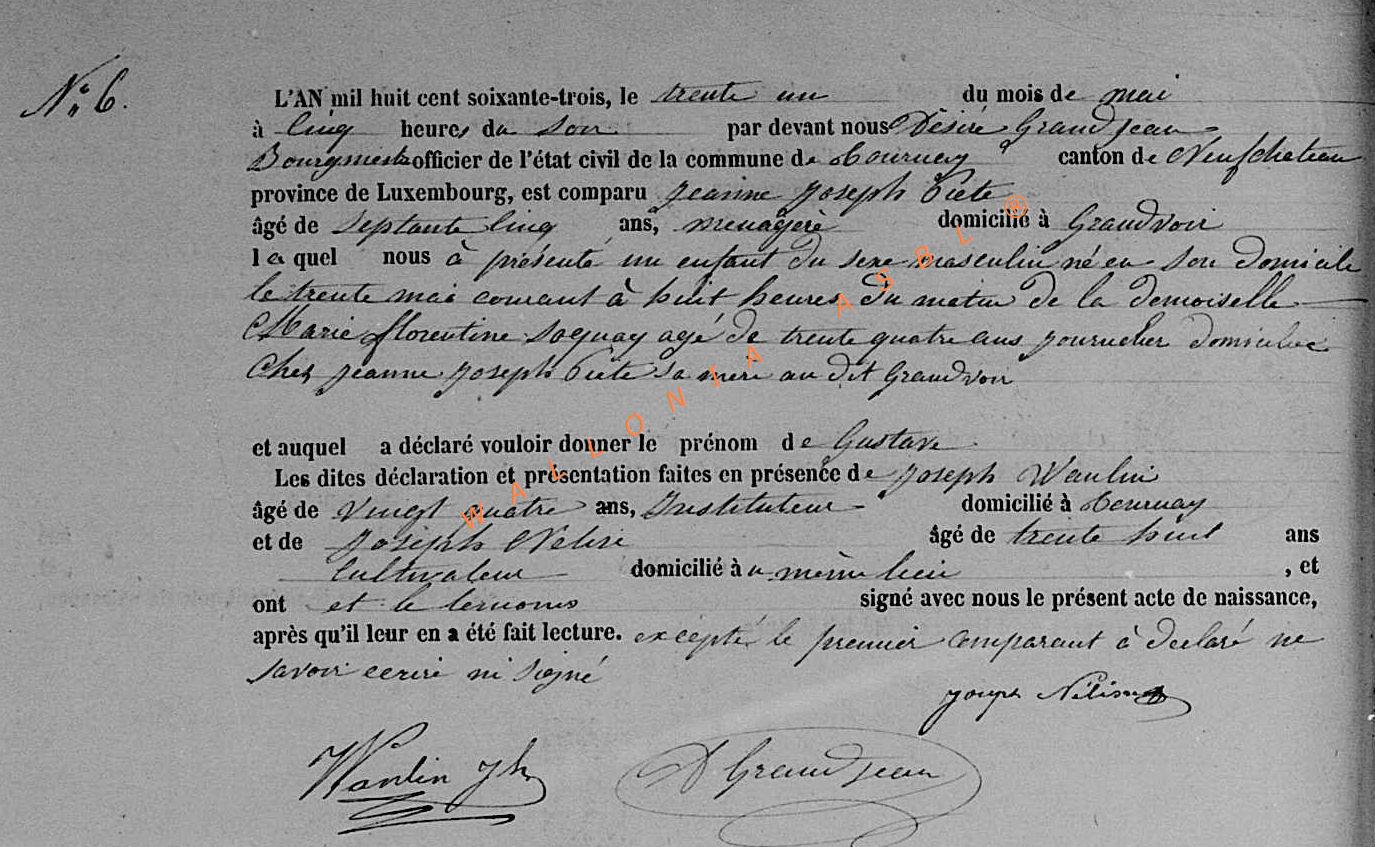 N° 6.
L'AN mil huit cent soixante-trois, le trente un du mois de mai
à cinq heures du soir par devant nous Désiré Grandjean
Bourgmestre officier de l'état civil de la commune de Tournay canton de Neufchateau
province de Luxembourg, est comparu Jeanne Joseph Piete
âgé de septante cinq ans, menagère domicilié à Grandvoir
laquel nous à présenté un enfant du sexe masculin né en son domicile
le trente mai courant à huit heures du matin de la demoiselle
Marie florentine agé de trente quatre ans domiciliée
Chez Jeanne Joseph Piete sa mere au dit Grandvoir
et auquel a déclaré vouloir donner le prénom de Gustave
Les dites déclaration et présentation faites en présence de Joseph Wanlin
âgé de Vingt quatre ans, Instituteur domicilié à Tournay
et de Joseph Nelisse âgé de trente huit ans
Cultivateur domicilié à u même lieu , et
ont et le temoins signé avec nous le présent acte de naissance,
après qu'il leur en a été fait lecture. excépté le premier comparant à declaré ne
savoir ecrire ni signé
Joseph
Wanlin Jh D Grandjean
WALLONIA ASBL ®